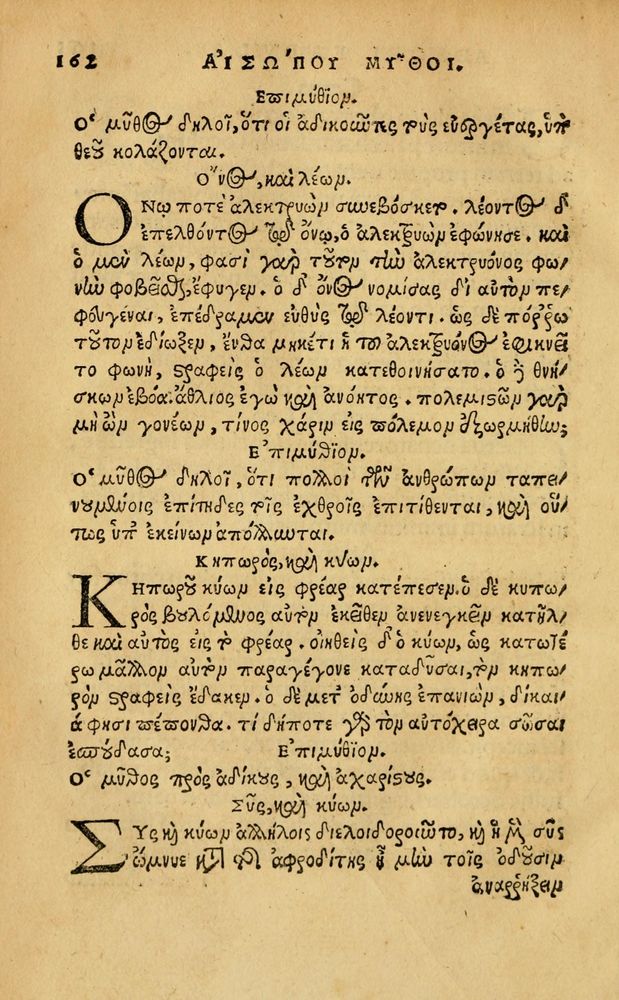 162 ΑΙΣΩΠΟΥ ΜΥΘΟΙ.
Επιμύθιον.
Ο μῦθος δηλοῖ, ὅτι οἱ ἀδικοῦντες τοὺς εὐεργέτας, ὑπὸ
θεοῦ κολάζονται.
Ὄνος, καὶ λέων.
ΟΝῳ ποτὲ ἀλεκτρυὼν συνεβόσκεν. λέοντος δ'
ἐπελθόντος τῷ ὄνῳ, ὁ ἀλεκτρυὼν ἐφώνησε. καὶ
ὁ μὲν λέων, φασὶ γὰρ τοῦτον τὴν ἀλεκτρυόνος φω/
νὴν φοβεῖσθαι, ἔφυγεν. ὁ δ' ὄνος νομίσας δι' αὐτὸν πε/
φευγέναι, ἐπέδραμεν εὐθὺς τῷ λέοντι. ὡς δὲ πόρρω
τοῦτον ἐδίωξεν, ἔνθα μηκέτι ἡ τοῦ ἀλεκτρυόνος ἐφικνεῖ
το φωνὴ, στραφεὶς ὁ λέων κατεθοινήσατο. ὁ δὲ θνή/
σκων ἐβόα. ἄθλιος ἐγὼ καὶ ἀνόητος. πολεμιστῶν γὰρ
μὴ ὢν γονέων, τίνος χάριν εἰς πόλεμον ἐξωρμήθην;
Ἐπιμύθιον.
Ο μῦθος δηλοῖ, ὅτι πολλοὶ τῶν ἀνθρώπων ταπει/
νουμένοις ἐπίτηδες τοῖς ἐχθροῖς ἐπιτίθενται, καὶ οὕ/
τως ὑπ' ἐκείνων ἀπόλλυνται.
Κηπωρὸς, καὶ κύων.
ΚΗπωροῦ κύων εἰς φρέαρ κατέπεσεν. ὁ δὲ κυπω/
ρὸς βουλόμενος αὐτὸν ἐκεῖθεν ἀνενεγκεῖν κατῆλ/
θε καὶ αὐτὸς εἰς τὸ φρέαρ. οἰηθεὶς δ' ὁ κύων, ὡς κατωτέ
ρω μᾶλλον αὐτὸν παραγέγονε καταδῦσαι, τὸν κηπω/
ρὸν στραφεὶς ἔδακεν. ὁ δὲ μετ' ὀδύνης ἐπανιὼν, δίκαι/
ά φησι πέπονθα. τί δήποτε γὰρ τὸν αὐτόχειρα σῶσαι
ἐσπούδασα; Ἐπιμύθιον.
Ο μῦθος πρὸς ἀδίκους, καὶ ἀχαρίστους.
Σῦς, καὶ κύων.
ΣΥς καὶ κύων ἀλλήλοις διελοιδοροῦντο, καὶ ἡ μὲν σῦς
ὤμνυε κατὰ τῆς ἀφροδίτης ἦ μὴν τοῖς ὀδοῦσιν
ἀναρρήξειν